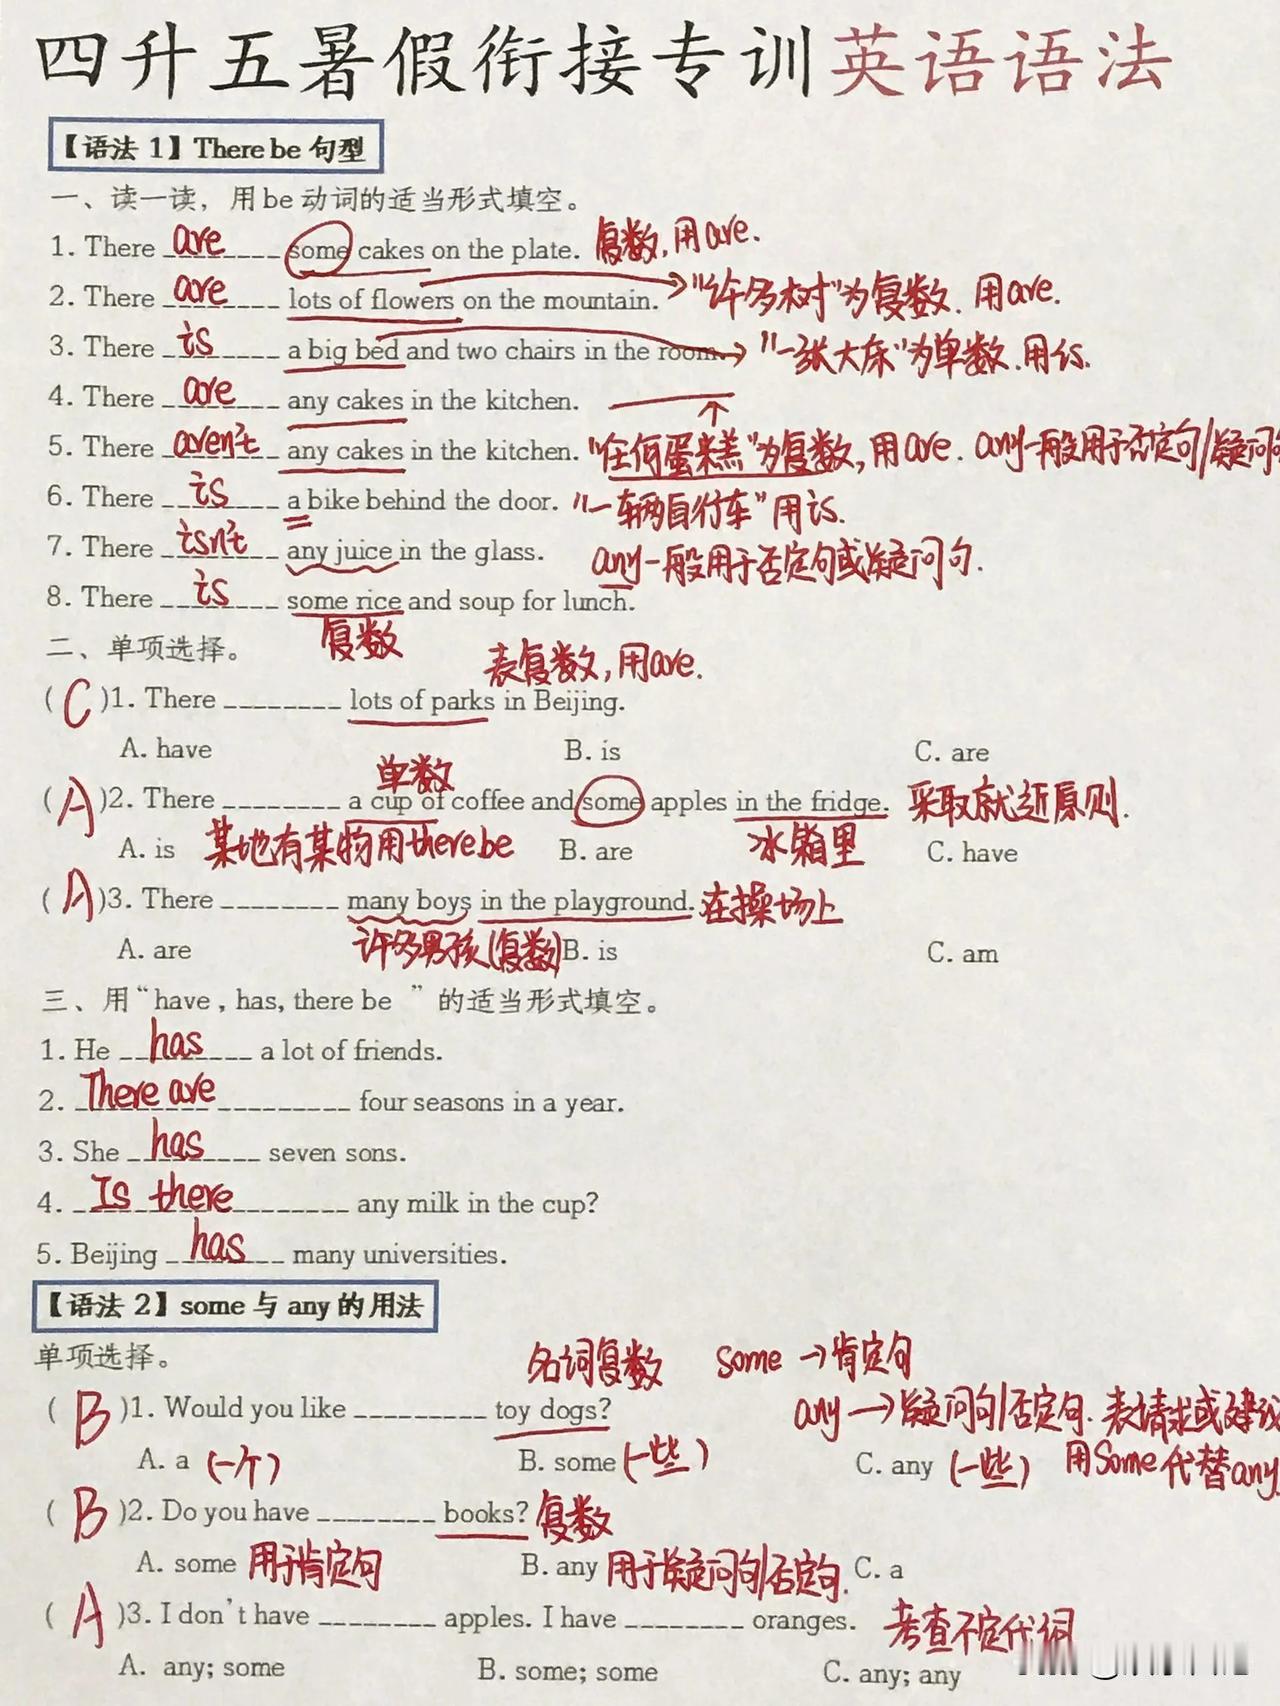 四升五暑假衔接专训英语语法
【语法 1】There be 句型
一、读一读，用 be 动词的适当形式填空。
1. There are some cakes on the plate. 复数,用are.
2. There are lots of flowers on the mountain. "许多树"为复数.用are.
3. There is a big bed and two chairs in the room. "一张大床"为单数.用is.
4. There are any cakes in the kitchen.
5. There aren't any cakes in the kitchen. "任何蛋糕"为复数,用are. any一般用于否定句/疑问句
6. There is a bike behind the door. "一辆自行车"用is.
7. There isn't any juice in the glass. any一般用于否定句或疑问句.
8. There is some rice and soup for lunch.
复数
二、单项选择。 表复数,用are.
( C )1. There ________ lots of parks in Beijing.
A. have B. is C. are
单数
( A )2. There ________ a cup of coffee and some apples in the fridge. 采取就近原则.
A. is 某地有某物用there be B. are 冰箱里 C. have
( A )3. There ________ many boys in the playground. 在操场上
A. are 许多男孩(复数) B. is C. am
三、用“have , has, there be ”的适当形式填空。
1. He has a lot of friends.
2. There are four seasons in a year.
3. She has seven sons.
4. Is there any milk in the cup?
5. Beijing has many universities.
【语法 2】some 与 any 的用法
单项选择。 名词复数 some →肯定句
( B )1. Would you like ________ toy dogs? any →疑问句/否定句.表请求或建议
A. a (一个) B. some (一些) C. any (一些) 用Some代替any
( B )2. Do you have ________ books? 复数
A. some 用于肯定句 B. any 用于疑问句/否定句. C. a
( A )3. I don't have ________ apples. I have ________ oranges. 考查不定代词
A. any; some B. some; some C. any; any